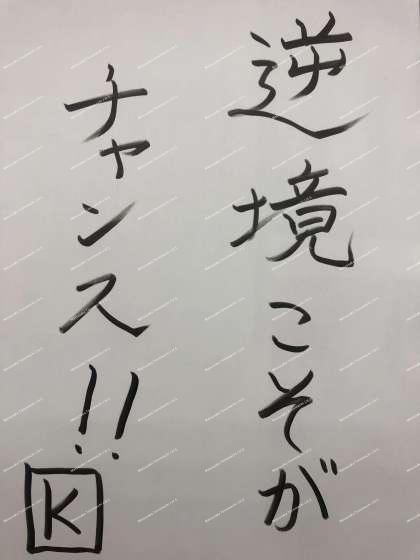 逆境こそが
チャンス!!
K